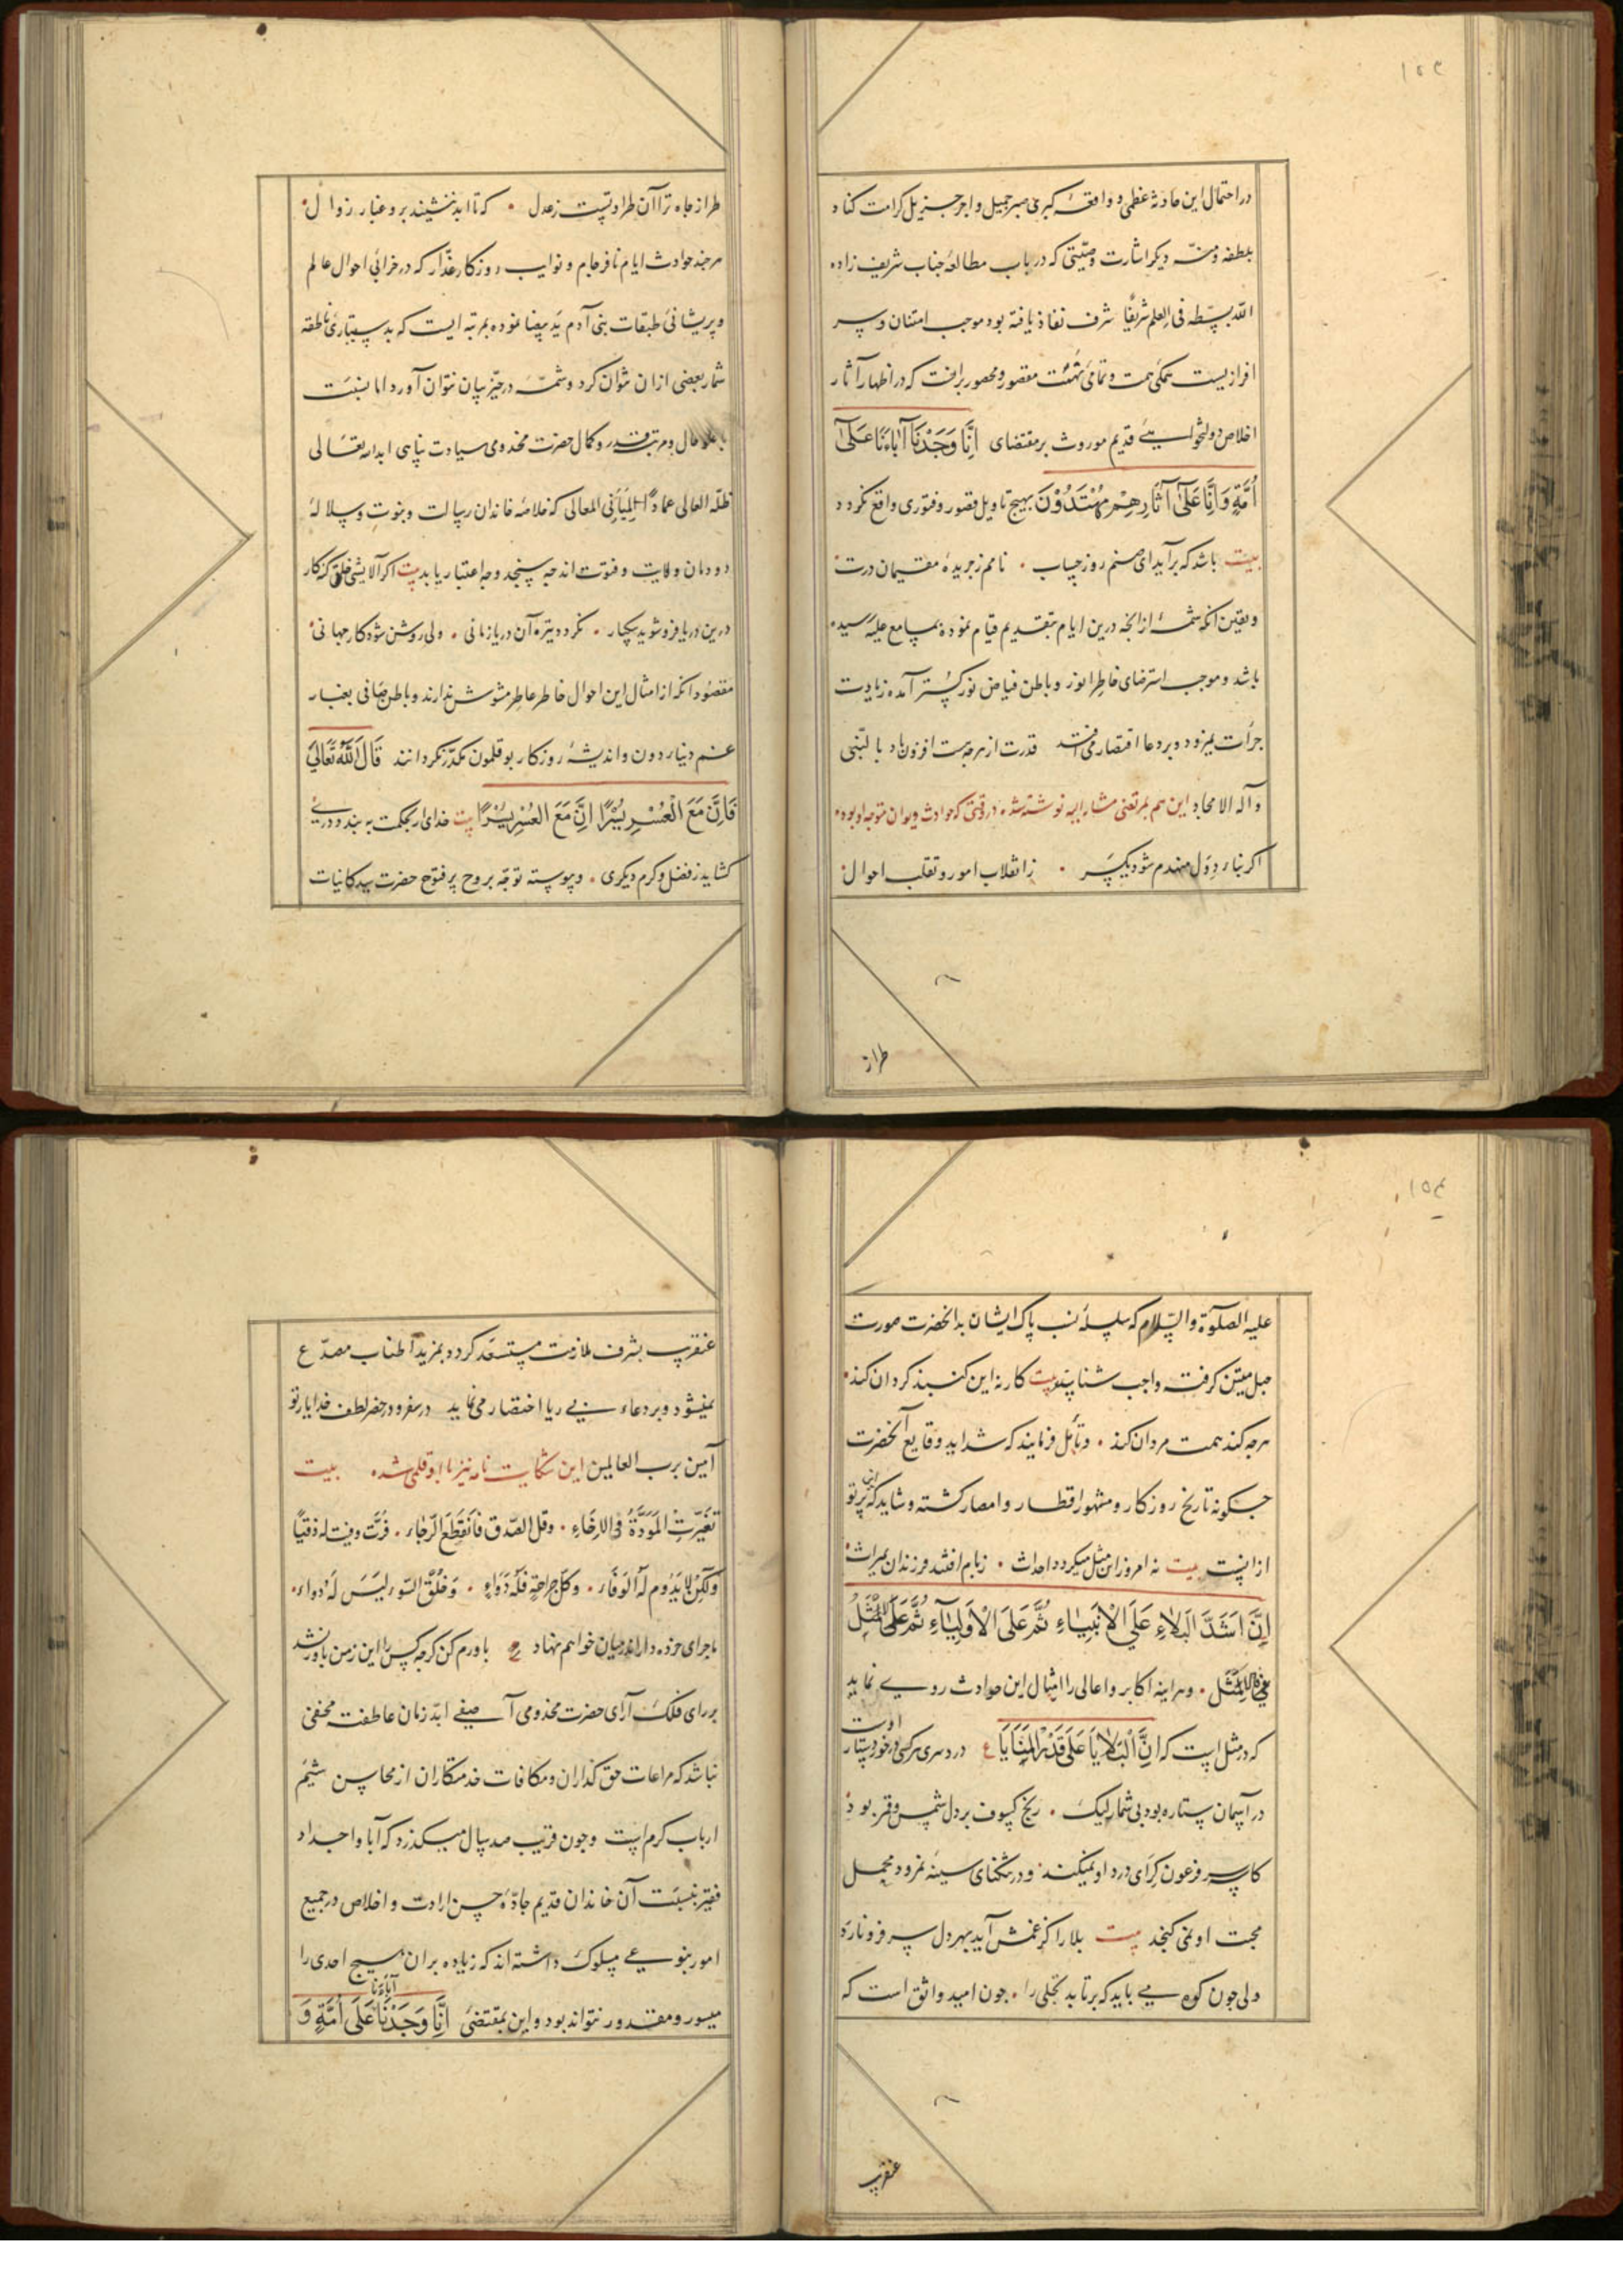 ۱۵۳
در احتمال این حادثه عظمی و واقعه کبری صبر جمیل و اجر جزیل کرامت کناد
بلطفه ومنّه دیکر اشارت وصیّتی که در باب مطالعه جناب شریف زاده
اللّه بسطه فی العلم شریفًا شرف نفاذ یافته بود موجب امتنان و سر
افرازیست همکی همت و تمامی نهمت مقصور و محصور برافت که در اظهار آثار
اخلاص دولتخواهی قدیم موروث بر مقتضای اِنَّا وَجَدْنَا آبَاءَنَا عَلٰی
اُمَّةٍ وَاِنَّا عَلٰی آثَارِهِمْ مُهْتَدُوْنَ بهیچ تاویل قصور و فتوری واقع نکردد
بیت باشد که برآید ای صنم روز حساب • نامم ز جریده مقیمان درت
و یقین انکه شمه از انجه درین ایام بتقدیم قیام نموده بمسامع علیه رسیده
باشد و موجب استرضای خاطر انور و باطن فیاض نور کستر آمده زیادت
جرأت نمیرود و بر دعا اقتصار می افتد قدرت از هرچه هست افزون باد بالنّبی
وآله الامجاد این هم بمرتضی مشار الیه نوشته شد در وقتی که حوادث دیوان متوجه او بود
اکر بناء دول منهدم شود یکسر • ز انقلاب امور و تقلب احوال
طراز
طراز جاه ترا آن طراوتیست ز عدل • که تا ابد ننشیند برو غبار زوال
هر چند حوادث ایام نافرجام و نوایب روزکار غدّار که در خرابی احوال عالم
و پریشانی طبقات بنی آدم ید بیضا نموده بمرتبه ایست که بدستیاری ناطقه
شمار بعضی ازان نتوان کرد و شمّه در حیّز بیان نتوان آورد اما بنسبت
با علو حال و مرتبه قدر و کمال حضرت مخدومی سیادت پناهی ابد الله تعالی
ظلّه العالی عمادًا لمبانی المعالی که خلاصه خاندان رسالت و نبوت و سلاله
دودمان ولایت و فتوت اند جه سنجد و جه اعتبار یابد بیت اکر آلایشی خلق کنه کار
درین دریا فرو شوید بیکبار • نکردد تیره آن دریا زمانی • ولی روشن شود کار جهانی
مقصود انکه از امثال این احوال خاطر عاطر مشوش ندارند و باطن صافی بغبار
غم دنیاء دون و اندیشه روزکار بوقلمون مکدّر نکردانند قَالَ اللّٰهُ تَعَالٰی
فَاِنَّ مَعَ الْعُسْرِ یُسْرًا اِنَّ مَعَ الْعُسْرِ یُسْرًا بیت خدای ار بحکمت به بندد دری
کشاید ز فضل و کرم دیکری • و پیوسته توجه بروح پر فتوح حضرت سید کاینات
۱۵۴
علیه الصلوة والسّلام که سلسله نسب پاک ایشان بدانحضرت صورت
حبل متین کرفته واجب شناسند بیت کار نه این کنبد کردان کند
هر جه کند همت مردان کند • و تأمل فرمایند که شداید وقایع آنحضرت
جکونه تاریخ روزکار و مشهور اقطار و امصار کشته و شاید که این پرتو
ازانست بیت نه امروز این مثل میکردد احداث • ز بام افتد فرزندان بمیراث
اِنَّ اَشَدَّ الْبَلَاءِ عَلَی الْاَنْبِیَاءِ ثُمَّ عَلَی الْاَوْلِیَاءِ ثُمَّ عَلَی الْاَمْثَلِ
فَالْاَمْثَلِ • و هر اینه اکابر و اعالی را امثال این حوادث روی نماید
که در مثل است که اِنَّ الْبَلَایَا عَلٰی قَدْرِ الْمَنَایَا ع درد سری هر کسی در خور دستار اوست
در آسمان ستاره بود بی شمار لیک • رنج کسوف بر دل شمس و قمر بود
کاسر فرعون کرای درد او نمیکند و در تنکنای سینه نمرود مجمل
محبت او نمی کنجد بیت بلا را کر غمش آید بهر دل سر فرو نارد
ولی جون کوه می باید که برتابد تجلی را • جون امید واثق است که
عنقریب
عنقریب بشرف ملازمت مستسعد کردد بمزید اطناب مصدّع
نمیشود و بر دعاء بی ریا اختصار می نماید در سفر و در حضر لطف خدا یار تو
آمین برب العالمین این شکایت نامه نیز باو قلمی شد بیت
تَغَیَّرَتِ الْمَوَدَّةُ فِی الْاِخَاءِ • وقل الصّدق فَانْقَطَعَ الرَّجَاء •
وَلٰکِنْ لَا یَدُومُ لَهُ الْوَفَاء • وَکُلُّ جِرَاحَةٍ فَلَهُ دَوَاءٌ • وَخُلُقُ السُّوءِ لَیْسَ لَهُ دَوَاء
ماجرای خود درمیان خواهم نهاد ع باورم کن کرجه کس را این ز من باور نشد
بر رای فلک آرای حضرت مخدومی آصفی ابدّ زمان عاطفته مخفی
نباشد که مراعات حق کذاران و مکافات خدمتکاران از محاسن شیم
ارباب کرم است و جون قریب صد سال میکذرد که آبا و اجداد
فقیر بنسبت آن خاندان قدیم جادّه حسن ارادت و اخلاص در جمیع
امور بنوعی مسلوک داشته اند که زیاده بر ان هیج احدی را
میسور و مقدور نتواند بود و این بمقتضی اِنَّا وَجَدْنَا آبَاءَنَا عَلٰی اُمَّةٍ وَ